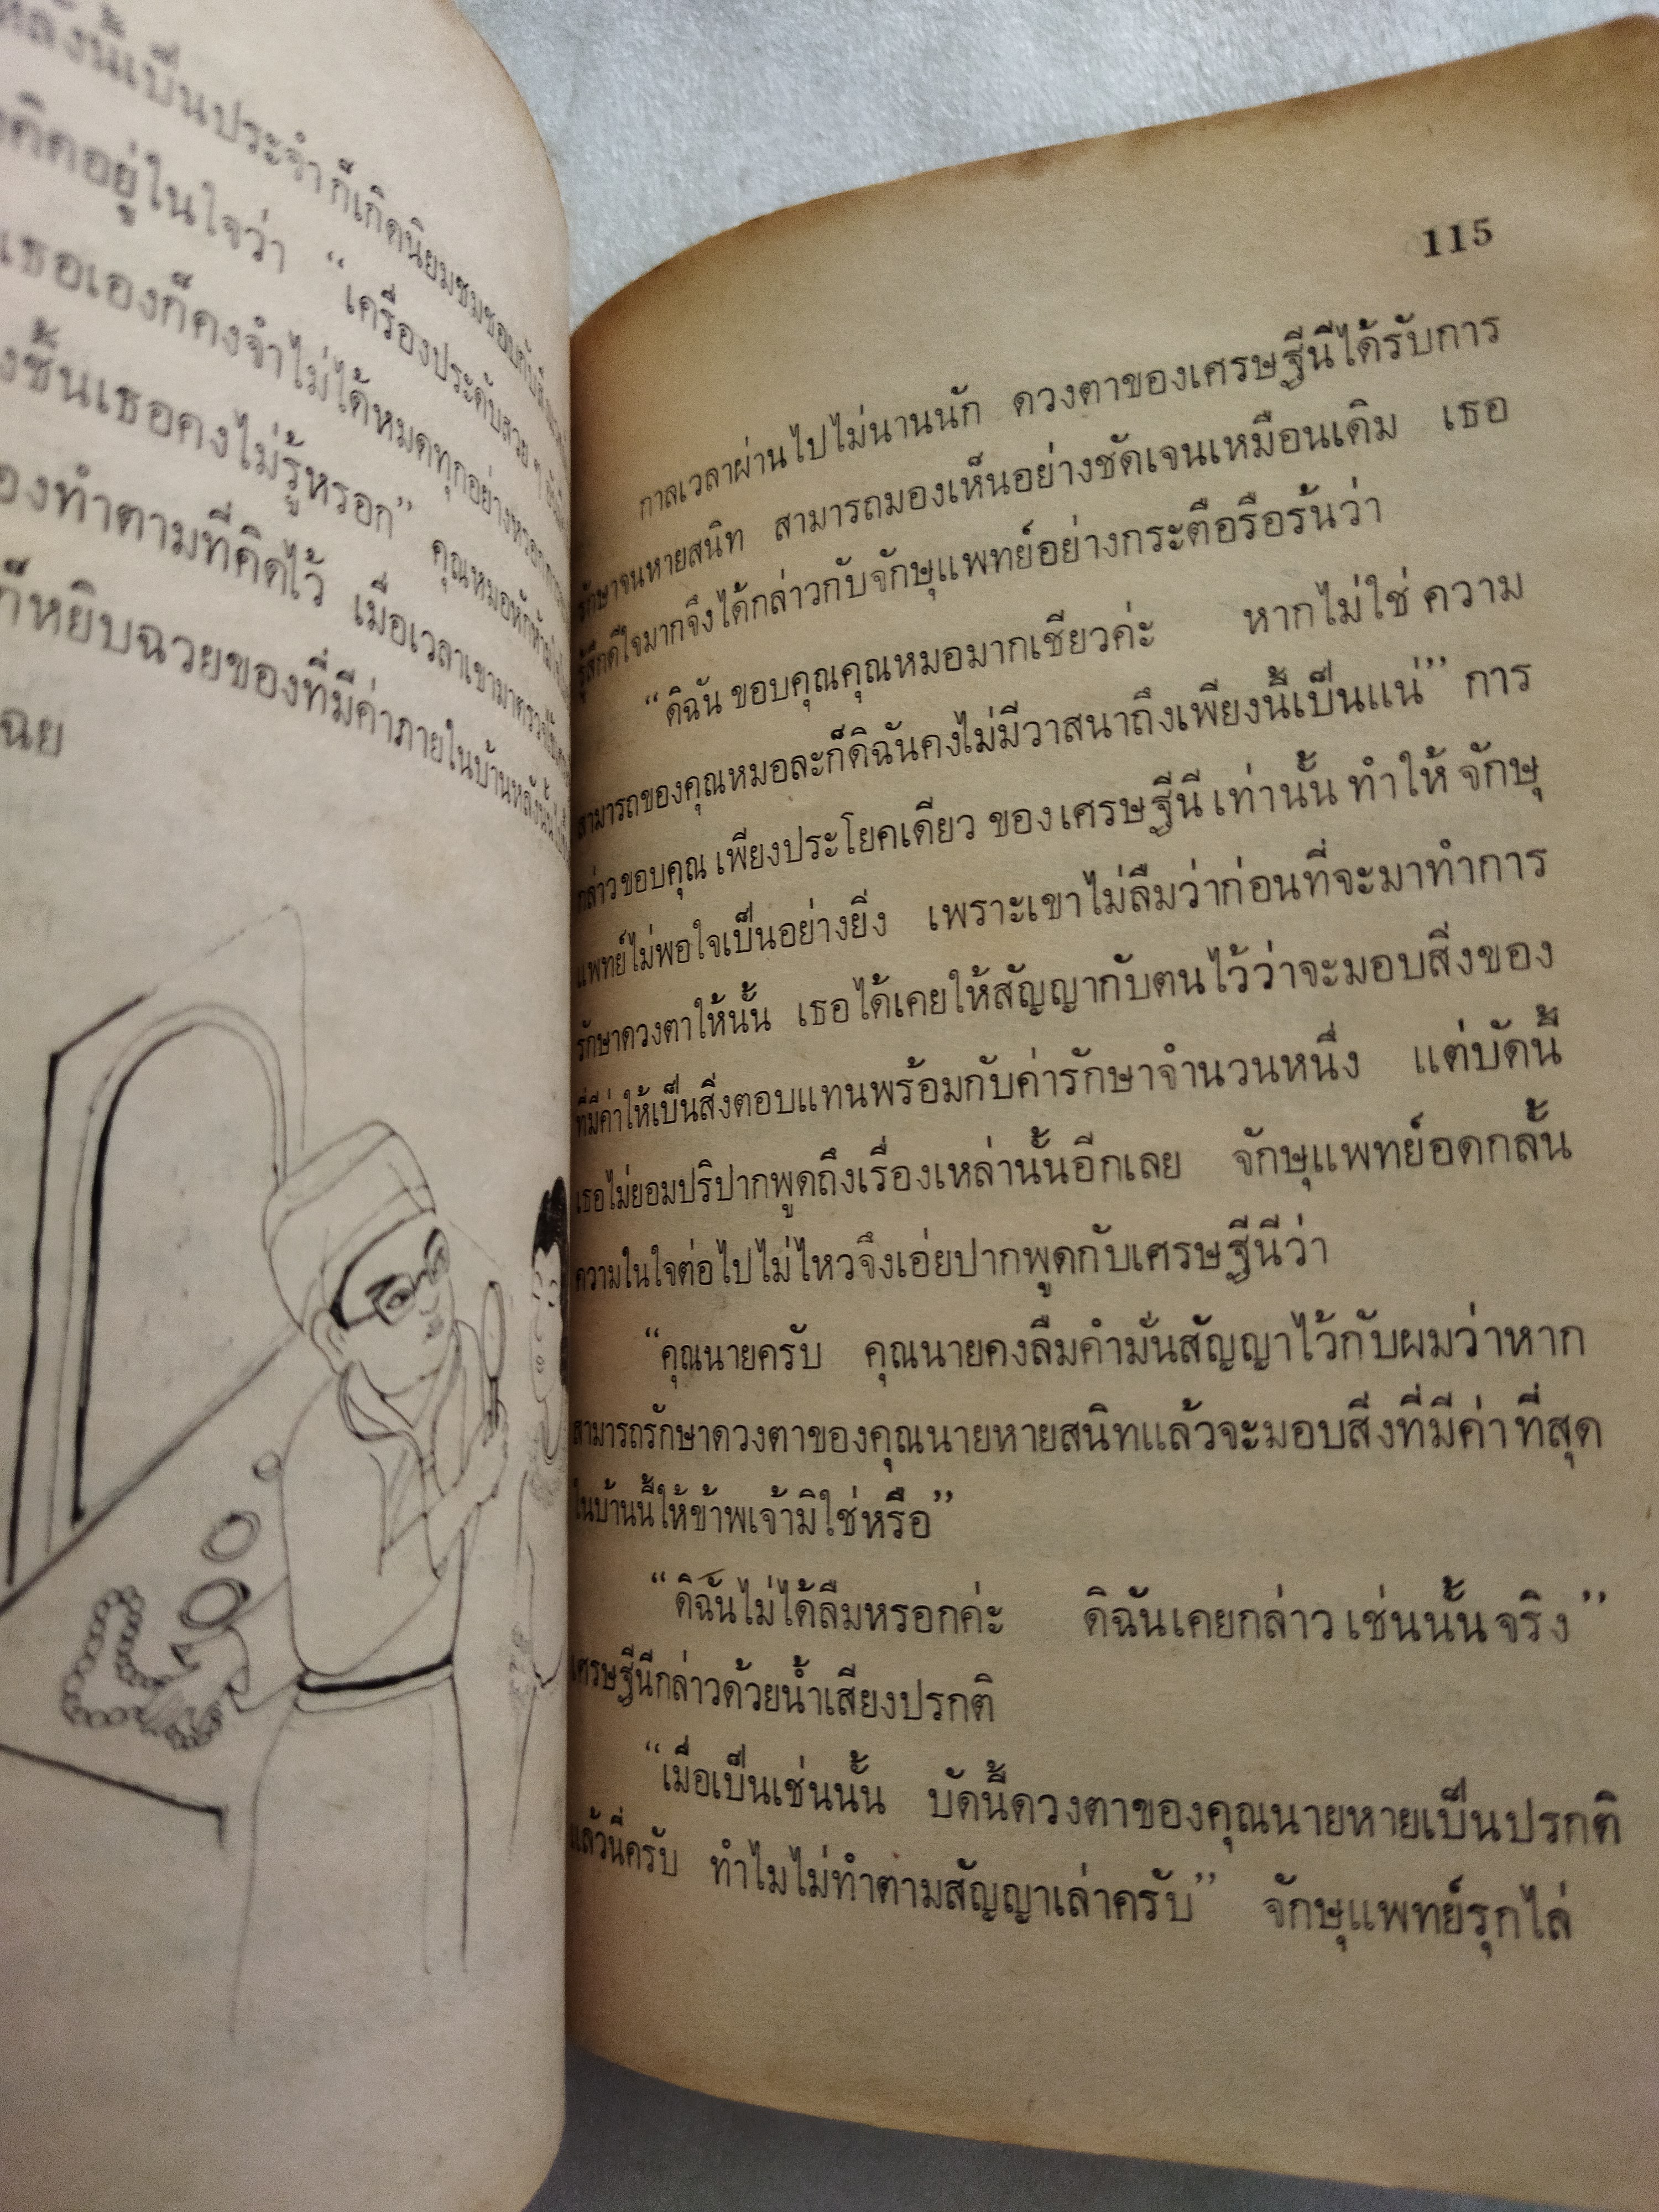 ลังนั้เป็นประจำก็เกิดนิยมชมชอบกับ
คิดอยู่ในใจว่า “เครื่องประดับสวย ๆ
เธอเองก็คงจำไม่ได้หมดทุกอย่างหรอก
ชั้นเธอคงไม่รู้หรอก” คุณหมอหัก
องทำตามที่คิดไว้ เมื่อเวลาเขามาตรวจ
ก็หยิบฉวยของที่มีค่าภายในบ้านหลังนั้น
ฉย
115
กาลเวลาผ่านไปไม่นานนัก ดวงตาของเศรษฐีนีได้รับการ
รักษาจนหายสนิท สามารถมองเห็นอย่างชัดเจนเหมือนเดิม เธอ
รู้สึกดีใจมากจึงได้กล่าวกับจักษุแพทย์อย่างกระตือรือร้นว่า
“ดิฉัน ขอบคุณคุณหมอมากเชียวค่ะ หากไม่ใช่ ความ
สามารถของคุณหมอละก็ดิฉันคงไม่มีวาสนาถึงเพียงนี้เป็นแน่” การ
กล่าวขอบคุณ เพียงประโยคเดียว ของ เศรษฐีนี เท่านั้น ทำให้ จักษุ
แพทย์ไม่พอใจเป็นอย่างยิ่ง เพราะเขาไม่ลืมว่าก่อนที่จะมาทำการ
รักษาดวงตาให้นั้น เธอได้เคยให้สัญญากับตนไว้ว่าจะมอบสิ่งของ
ที่มีค่าให้เป็นสิ่งตอบแทนพร้อมกับค่ารักษาจำนวนหนึ่ง แต่บัดนี้
เธอไม่ยอมปริปากพูดถึงเรื่องเหล่านั้นอีกเลย จักษุแพทย์อดกลั้น
ความในใจต่อไปไม่ไหวจึงเอ่ยปากพูดกับเศรษฐีนีว่า
“คุณนายครับ คุณนายคงลืมคำมั่นสัญญาไว้กับผมว่าหาก
สามารถรักษาดวงตาของคุณนายหายสนิทแล้วจะมอบสิ่งที่มีค่าที่สุด
ในบ้านนี้ให้ข้าพเจ้ามิใช่หรือ”
“ดิฉันไม่ได้ลืมหรอกค่ะ ดิฉันเคยกล่าว เช่นนั้นจริง”
เศรษฐีนีกล่าวด้วยน้ำเสียงปรกติ
“เมื่อเป็นเช่นนั้น บัดนี้ดวงตาของคุณนายหายเป็นปรกติ
แล้วนี่ครับ ทำไมไม่ทำตามสัญญาเล่าครับ” จักษุแพทย์รุกไล่